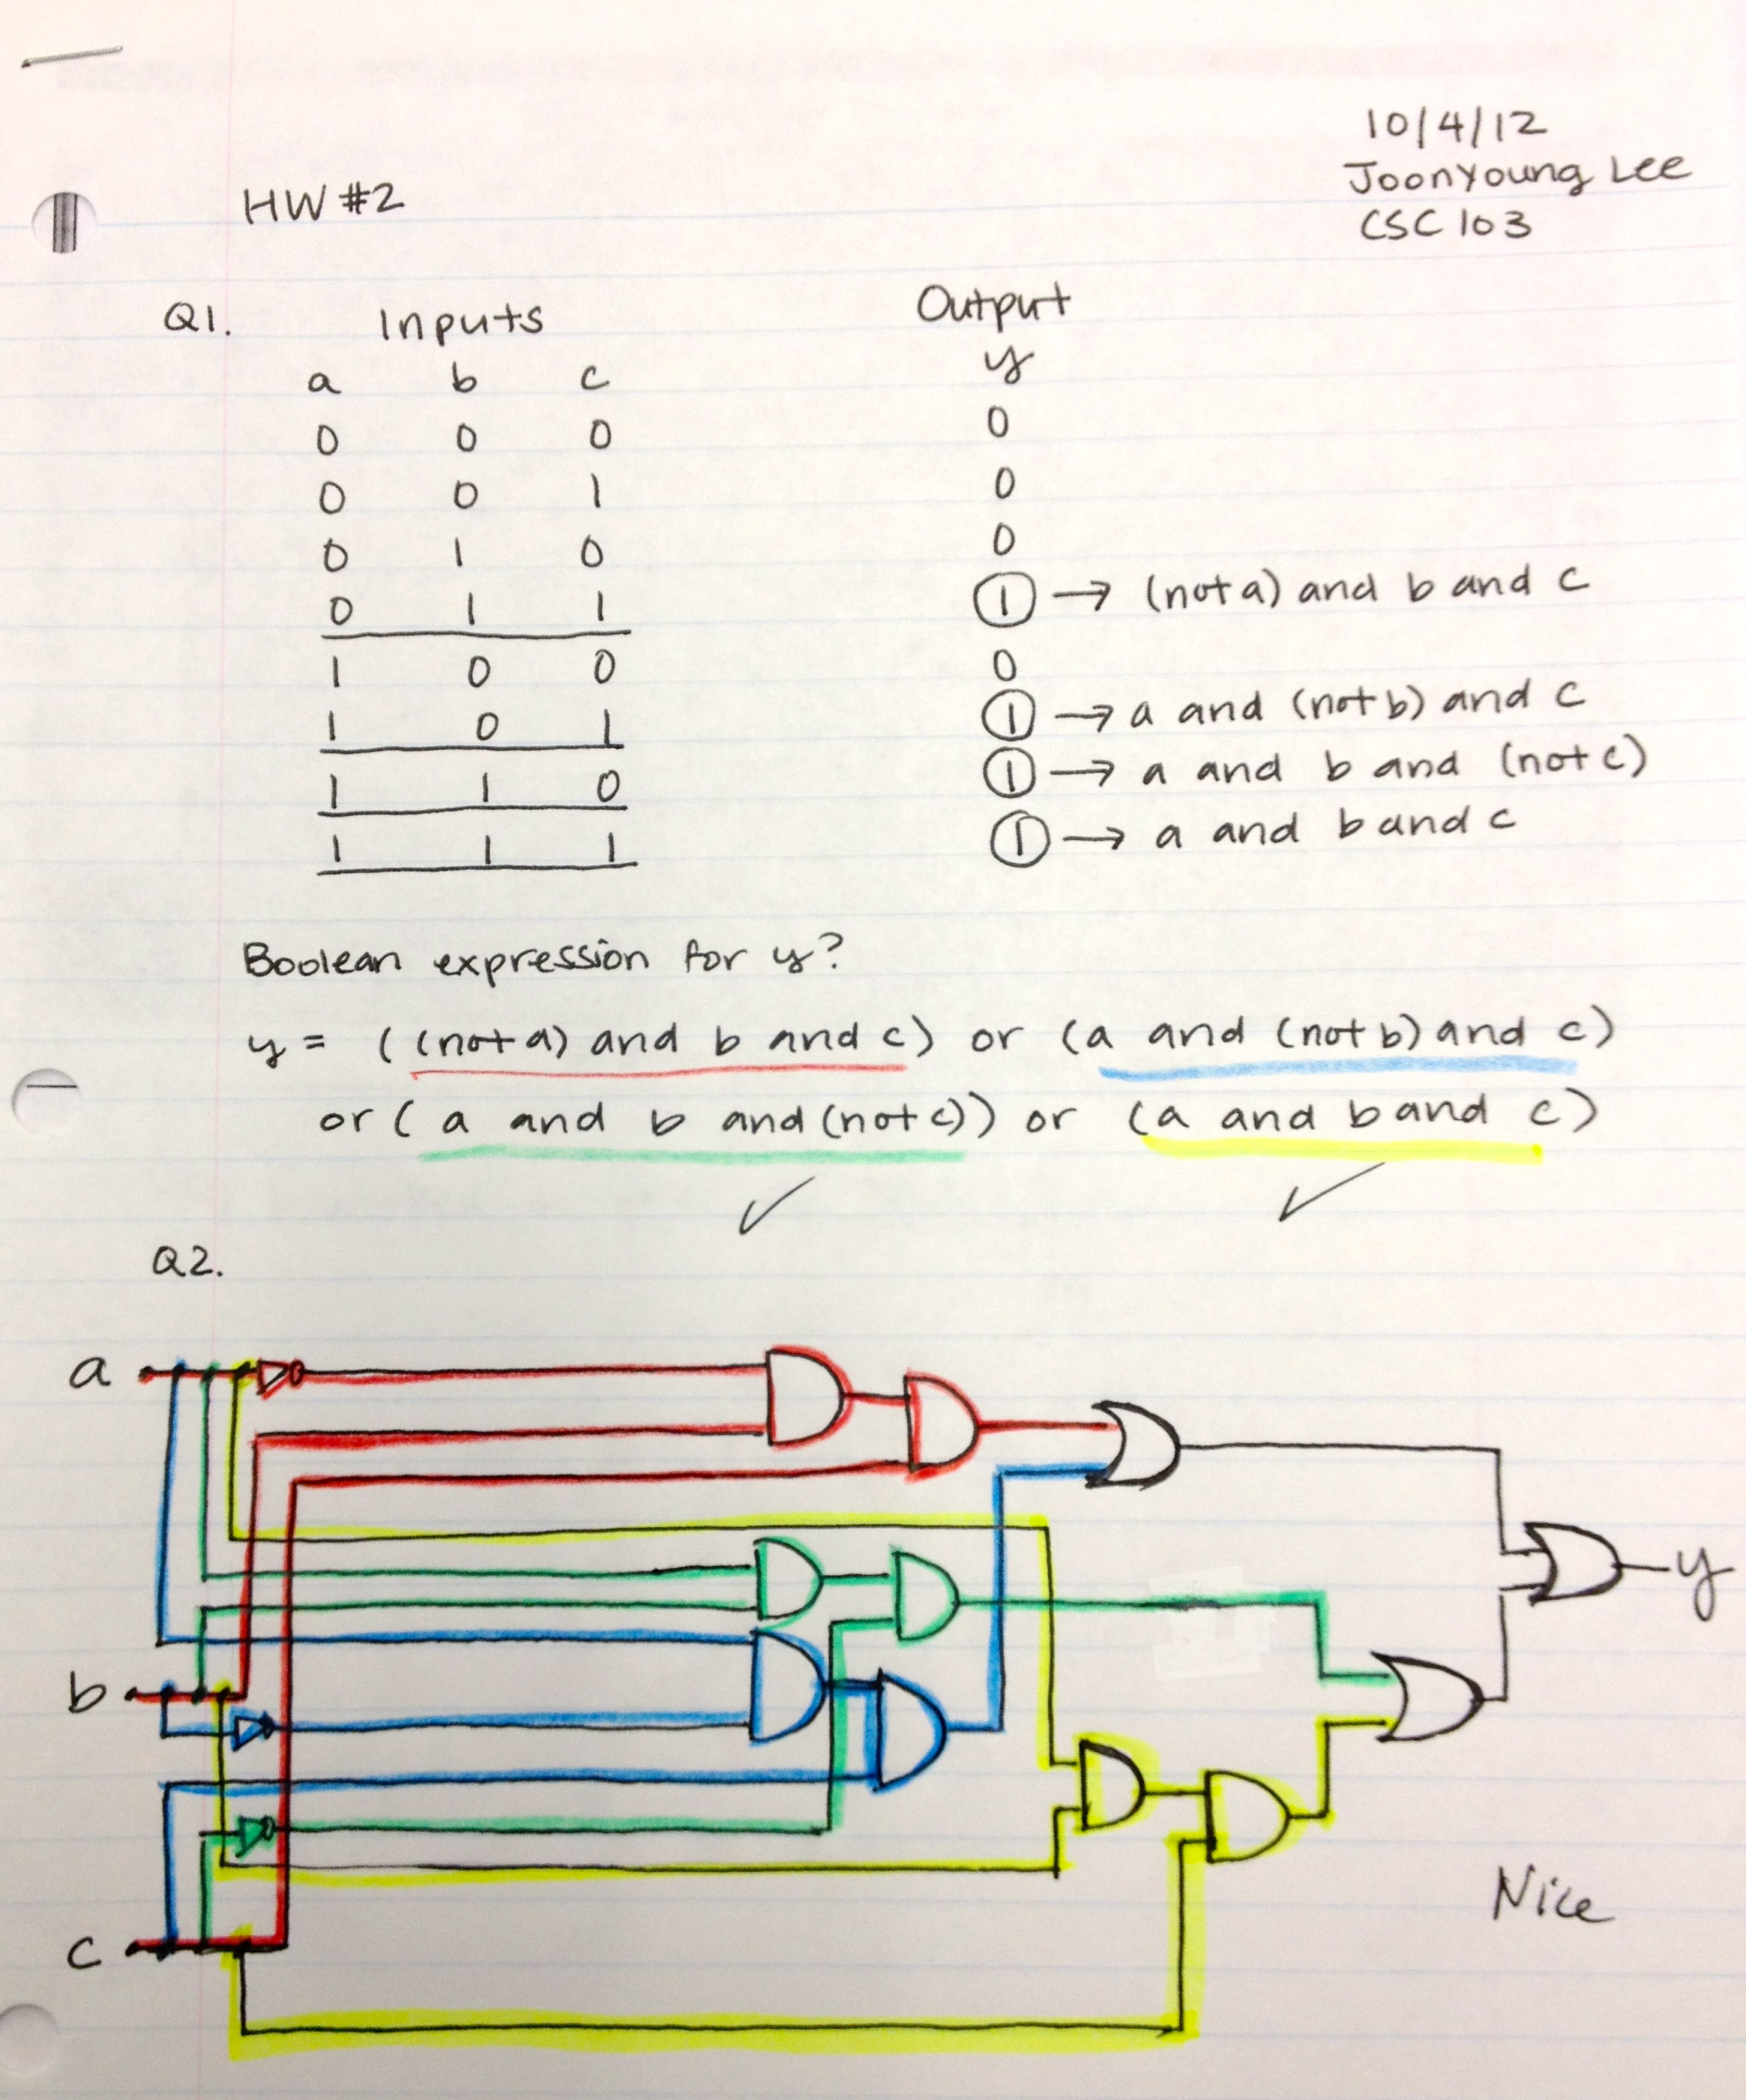 10/4/12
JoonYoung Lee
CSC 103
HW #2
Q1. Inputs Output
a b c y
0 0 0 0
0 0 1 0
0 1 0 0
0 1 1 1 → (not a) and b and c
1 0 0 0
1 0 1 1 → a and (not b) and c
1 1 0 1 → a and b and (not c)
1 1 1 1 → a and b and c
Boolean expression for y?
y = ((not a) and b and c) or (a and (not b) and c)
or (a and b and (not c)) or (a and b and c)
Q2.
a
y
b
Nice
c